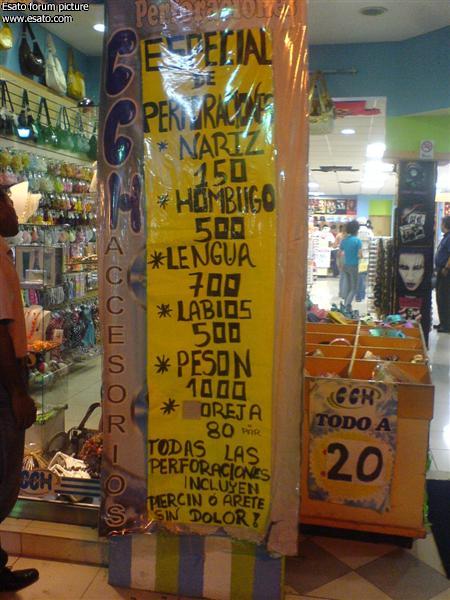 Esato forum picture
www.esato.com
Perforaciones
CCH
ACCESORIOS
ESPECIAL
DE
PERFORACIONES
* NARIZ
150
* HOMBLIGO
500
* LENGUA
700
* LABIOS
500
* PESON
1000
* OREJA
80 PAR
TODAS LAS
PERFORACIONES
INCLUYEN
PIERCIN Ó ARETE
SIN DOLOR?
CCH
CCH
TODO A
20